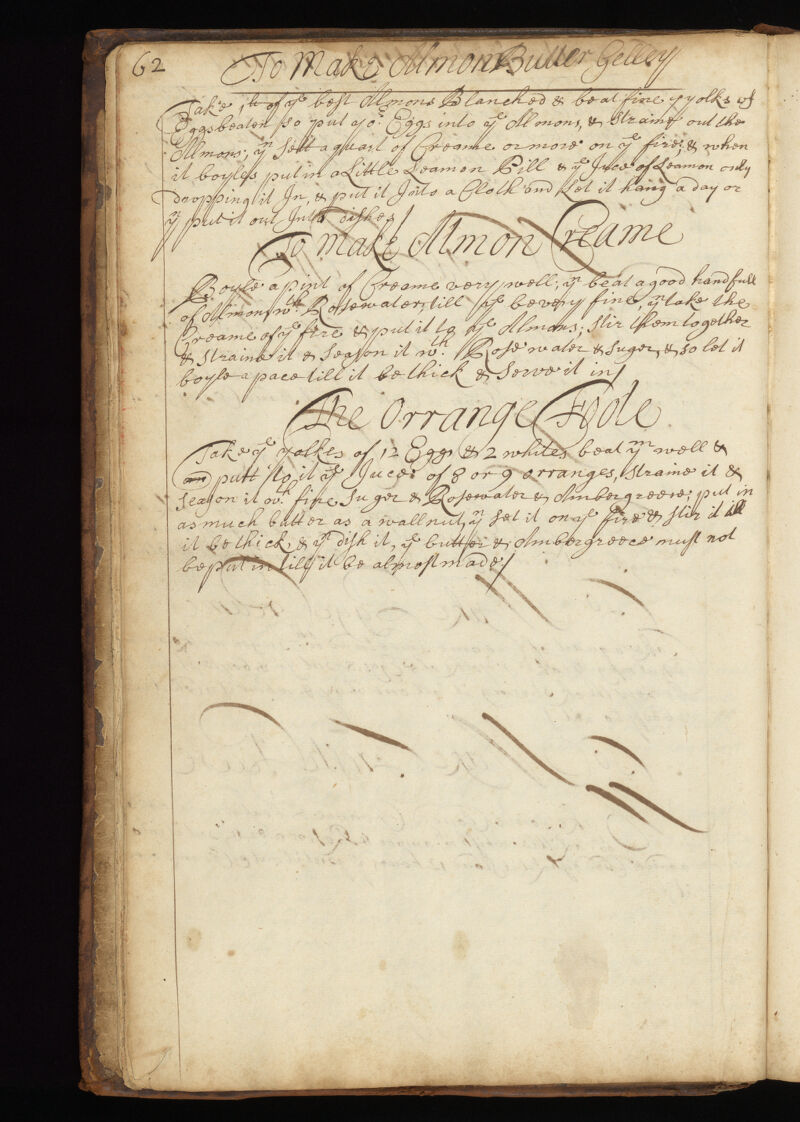 62
To Make Almon Butter Gelley
Take 1lt of ye best Almons Blanched & beat fine yolks of
Eggs beaten so put yor Eggs into ye Almons, & Straine out the
Almons; yn sett a quart of Creame or more on ye fire; & when
it boyles put in a Little Leamon Pill & ye Juce of Leamon only
droopping it In, & put it Into a Cloth and Let it hang a day or
yn put it out Into dishes
To Make Almon Creame
Boyle a pint of Creame very well; yn beat a good handfull
of Almons wth Rosewater till they be very fine, yn take the
Creame of ye fire & put it to ye Almons; Stir them together
& Straine it & Season it wth Rose water & Suger, & so let it
boyle apace till it be thick & Serve it in
The Orrange Foole
Take ye yolkes of 12 Eggs & 2 whites beat ym well &
and putt to it ye Juces of 8 or 9 orranges, Straine it &
Season it wth fine Suger & Rosewater & Ambergreece; put in
as much butter as a wallnut, yn Set it on ye fire & Stir it till
it be thick; & yn dish it, ye butter & Ambergreece must not
be put in till it be almost made